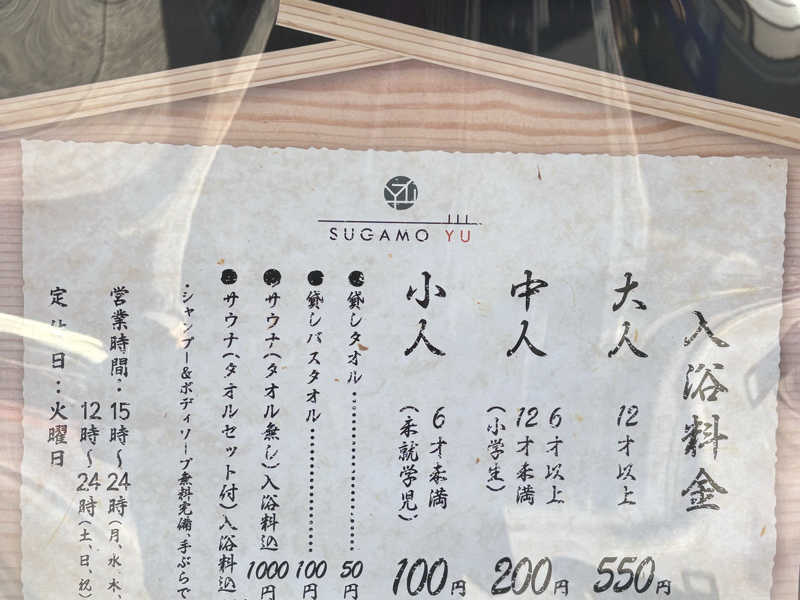 SUGAMO YU
入浴料金
大人 12才以上 550円
中人 6才以上
12才未満
(小学生) 200円
小人 6才未満
(未就学児) 100円
●貸しタオル 50円
●貸しバスタオル 100円
●サウナ(タオル無し)入浴料込 1000円
●サウナ(タオルセット付)入浴料込
・シャンプー&ボディソープ無料完備、手ぶらで
営業時間:15時〜24時(月、水、木、
12時〜24時(土、日、祝)
定休日:火曜日